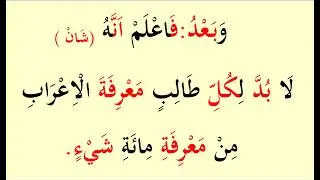 وَبَعْدُ: فَاعْلَمْ اَنَّهُ (شَانْ)
لَا بُدَّ لِكُلِّ طَالِبِ مَعْرِفَةَ الْاِعْرَابِ
مِنْ مَعْرِفَةِ مِائَةِ شَيْءٍ.